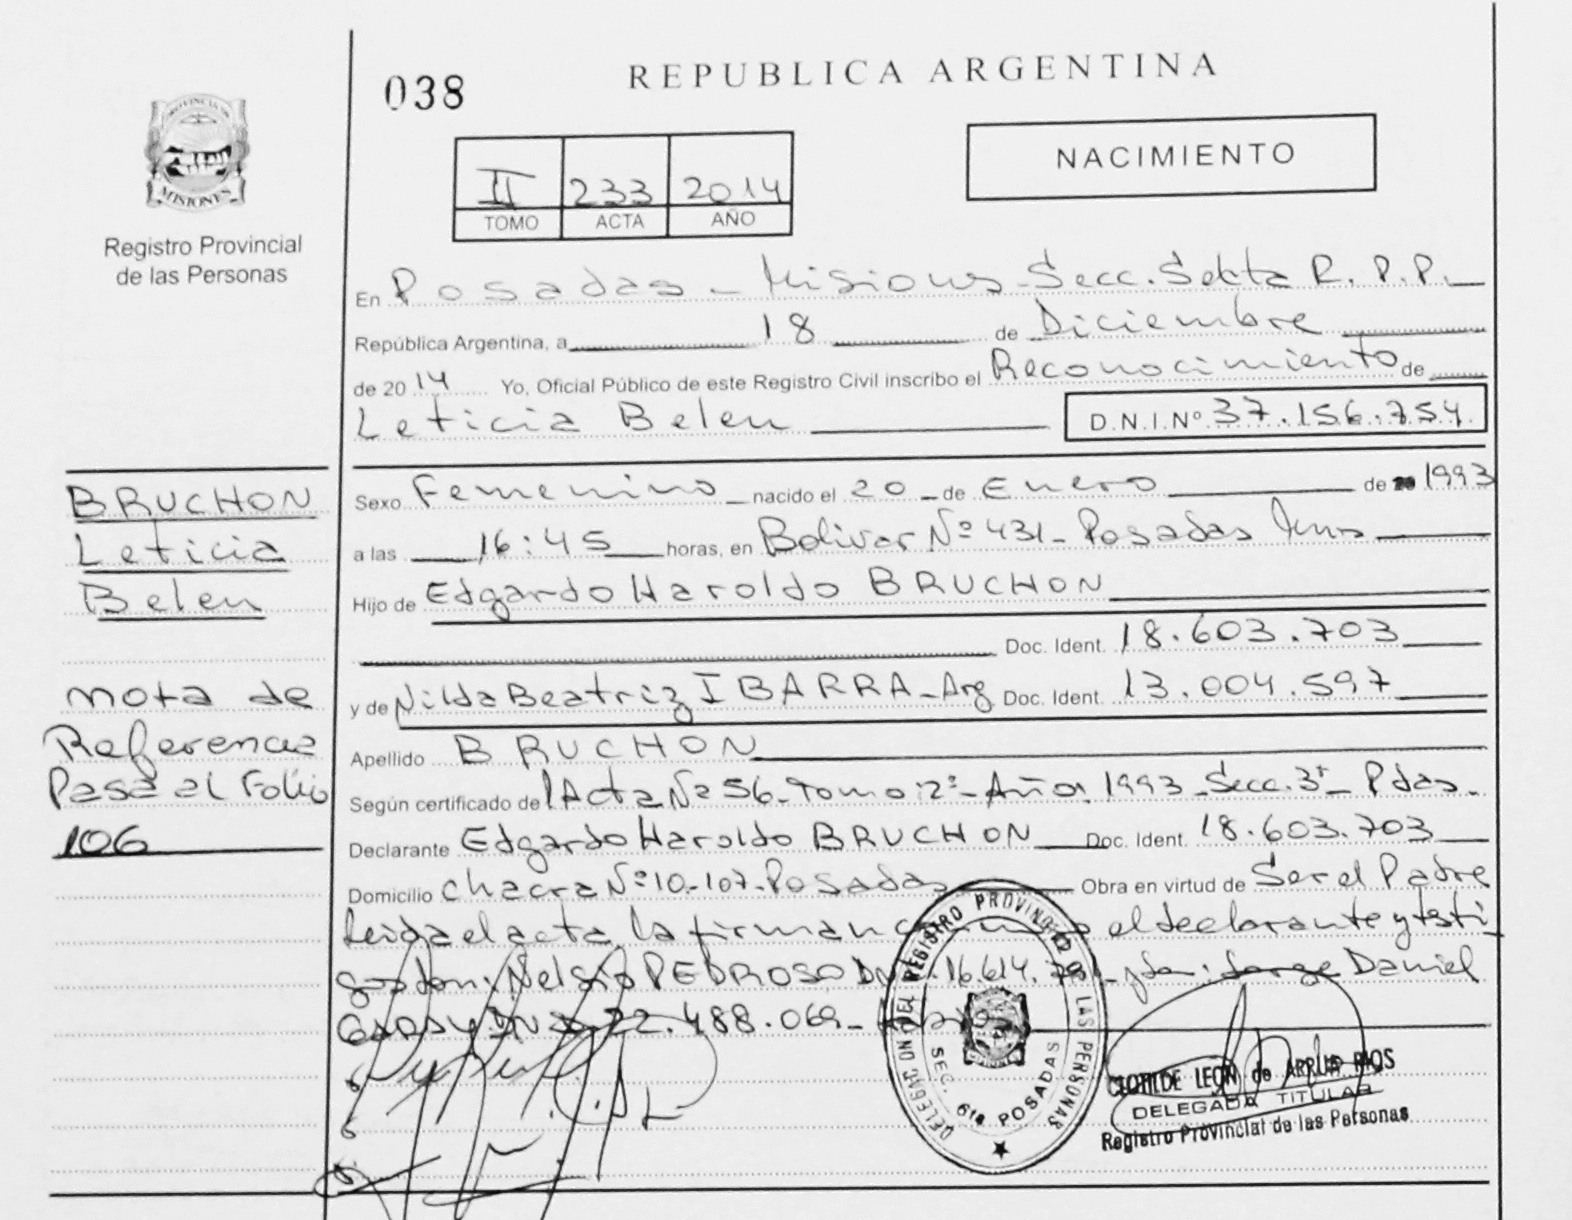 038
REPUBLICA ARGENTINA
NACIMIENTO
II 233 2014
TOMO ACTA AÑO
PROVINCIA DE
MISIONES
Registro Provincial
de las Personas
En Posadas - Misiones - Secc. Sexta R.P.P.
República Argentina, a 18 de Diciembre
de 2014 Yo, Oficial Público de este Registro Civil inscribo el Reconocimiento de
Leticia Belen D.N.I.Nº 37.156.754
BRUCHON
Leticia
Belen
Sexo Femenino nacido el 20 de Enero de 1993
a las 16:45 horas, en Bolivar Nº 431 - Posadas
Hijo de Edgardo Haroldo BRUCHON
Doc. Ident. 18.603.703
y de Nilda Beatriz IBARRA - Arg Doc. Ident. 13.004.597
Apellido BRUCHON
Según certificado de Acta Nº 56 - Tomo 2º - Año 1993 - Secc. 3ª - Pdas -
Declarante Edgardo Haroldo BRUCHON Doc. Ident. 18.603.703
Domicilio Chacra Nº 10-107 - Posadas Obra en virtud de Ser el Padre
Nota de
Referencia
Pasa al Folio
106
Leida el acta, la firman el declarante y testi
Nelsio PEDROSO 16.614. Jorge Daniel
22.488.069
DELEGACION DEL REGISTRO PROVINCIAL DE LAS PERSONAS
SEC. 6ta POSADAS
CLOTILDE LEON de
DELEGADA TITULAR
Registro Provincial de las Personas